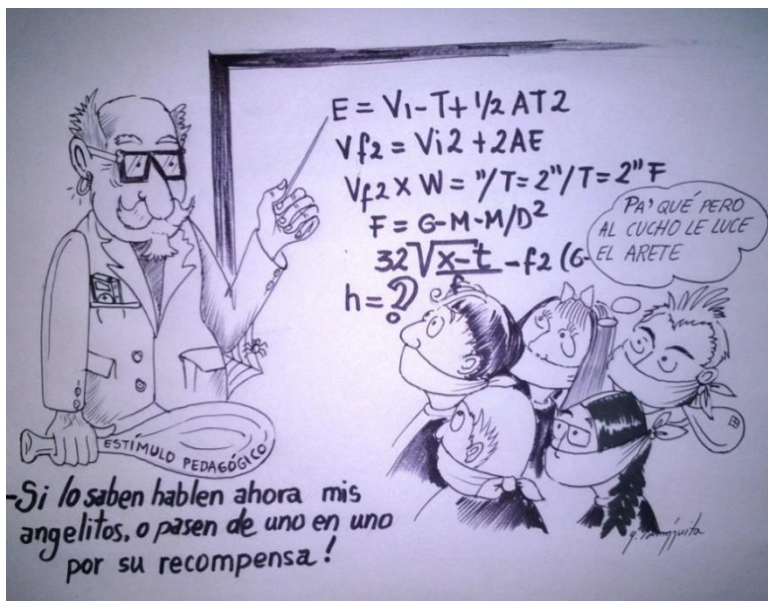 E = Vi-T+ 1/2 AT2
Vf2 = Vi2 +2AE
Vf2 X W = "/T= 2"/T= 2" F
F = G-M-M/D²
32√x-t -f2 (G-
h=?
PA' QUÉ PERO
AL CUCHO LE LUCE
EL ARETE
ESTÍMULO PEDAGÓGICO
-Si lo saben hablen ahora mis
angelitos, o pasen de uno en uno
por su recompensa!